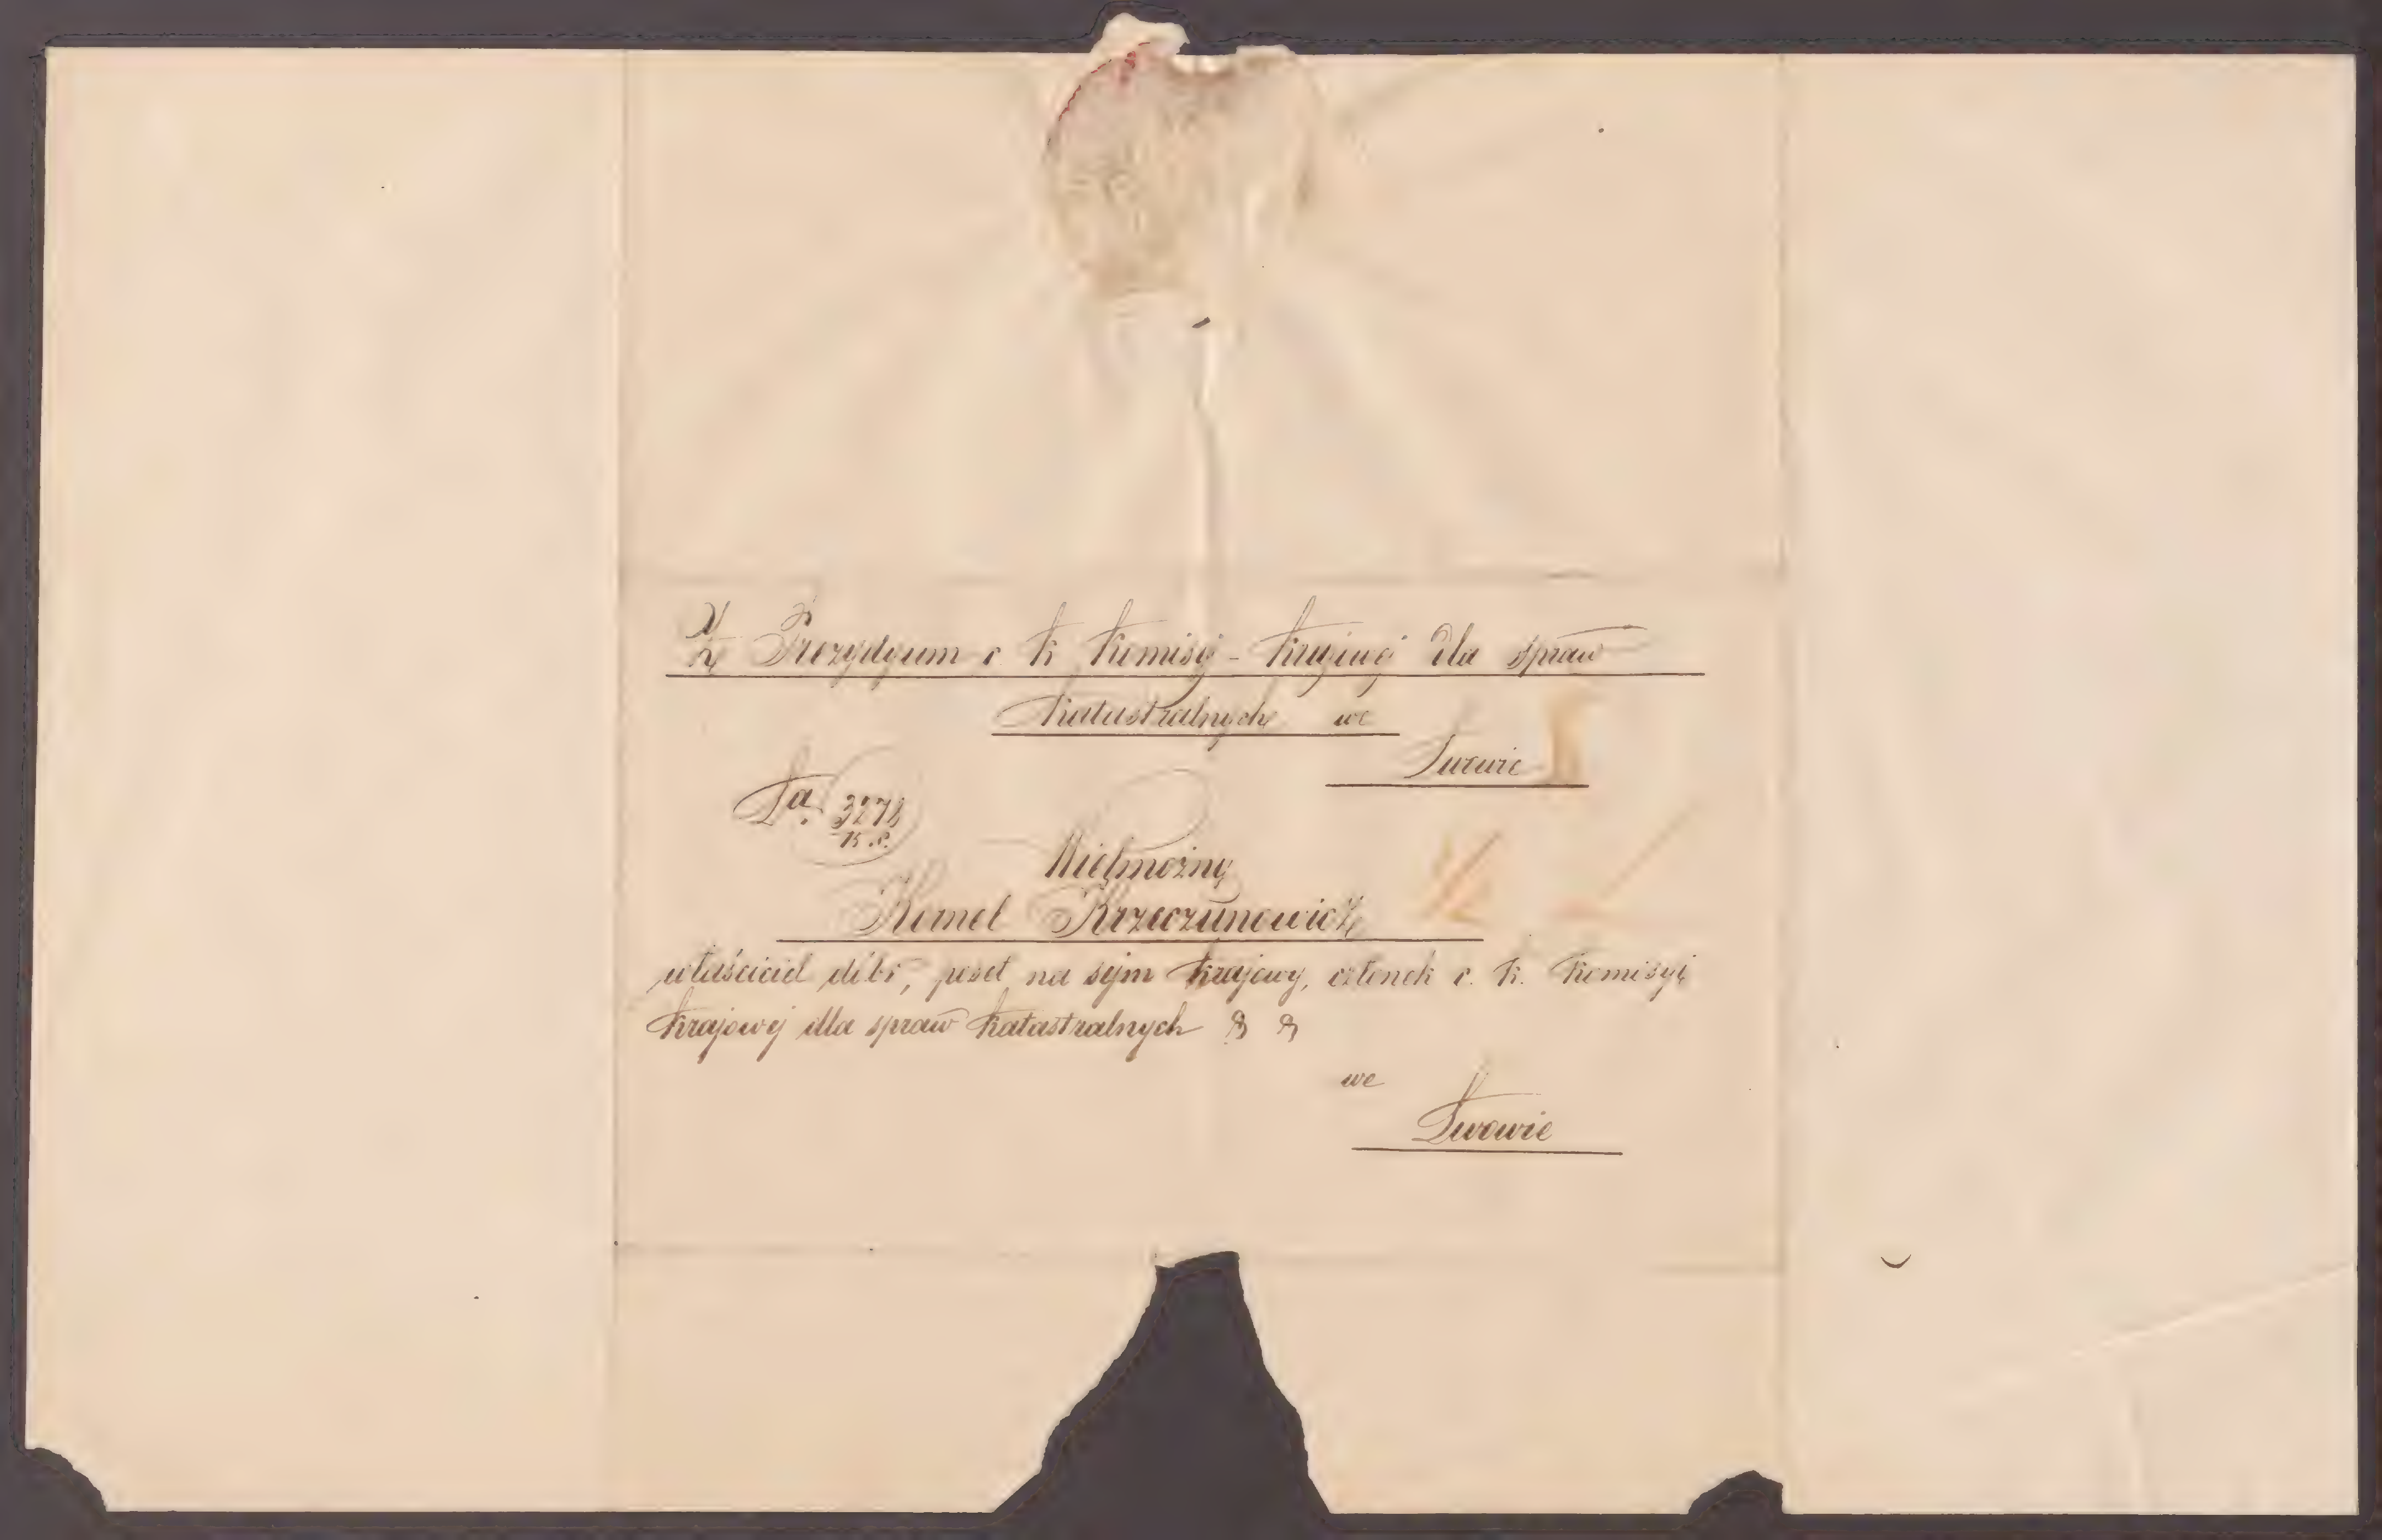 Z Prezydyum c. k. Komisyi krajowej dla spraw
katastralnych we
Lwowie
La. 3278
K.P.
Wielmożny
Kornel Krzeczunowicz
właściciel dóbr, poseł na sejm krajowy, członek c. k. Komisyi
krajowej dla spraw katastralnych & &
we
Lwowie